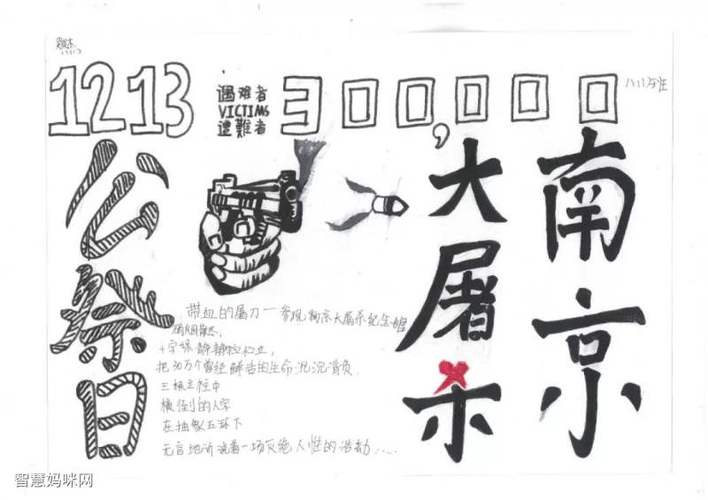 12 13
遇难者
VICTIMS
遭難者
300,000
南京
大屠杀
公祭日
带血的屠刀——参观南京大屠杀纪念馆
十字架静静伫立,
把30万个曾经鲜活的生命沉沉背负
三根立柱中
横倒的人字
在抽象五环下
无言地诉说着一场灭绝人性的浩劫.....
智慧妈咪网